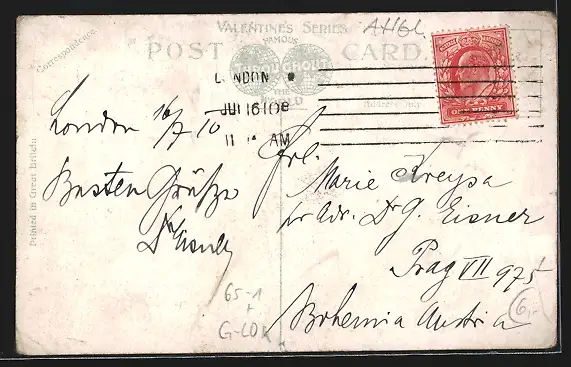 VALENTINE'S SERIES
FAMOUS
THROUGHOUT
THE
WORLD
POST CARD.
Correspondence.
Address Only.
Printed in Great Britain
LONDON
JUL 16 08
11 AM
ONE PENNY
London 16/7
Besten Grüße
Frl.
Marie Kreysa
per Adr. Dr G. Eisner
Prag VII 975
Bohemia Austria
65-1
+
6,-